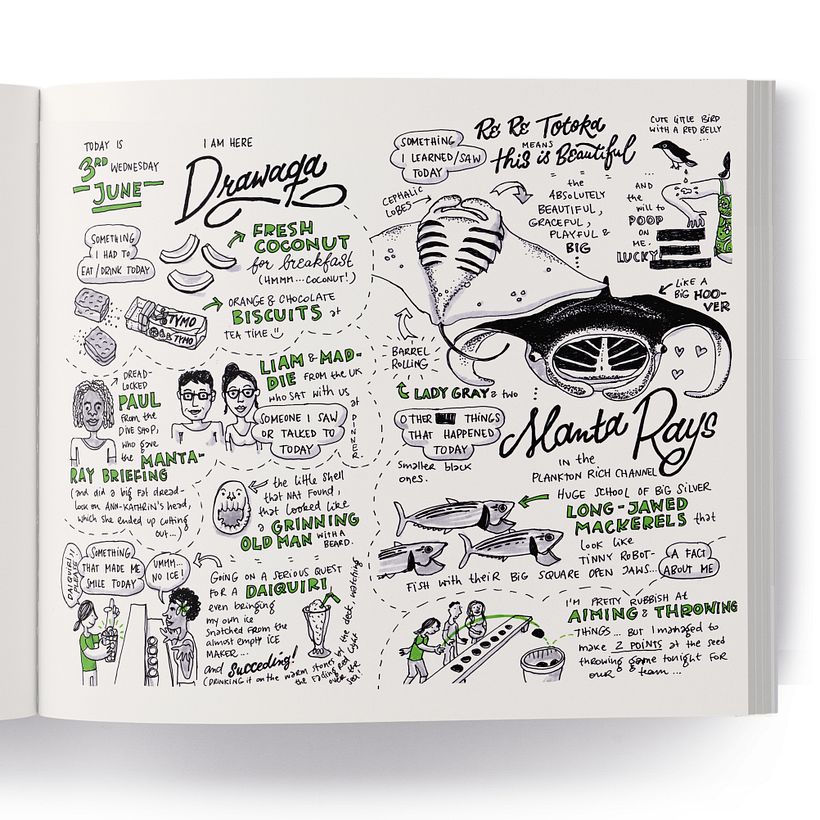 TODAY IS
3RD WEDNESDAY
JUNE
I AM HERE
Drawaqa
SOMETHING
I HAD TO
EAT/DRINK TODAY
FRESH
COCONUT
for breakfast
(HMMM...COCONUT!)
ORANGE & CHOCOLATE
BISCUITS at
TEA TIME
TYMO
TYMO
DREAD-
LOCKED
PAUL
FROM the
DIVE SHOP,
who gave
the MANTA-
RAY BRIEFING
(and did a big fat dread-
lock on ANN-KATHRIN's head,
which she ended up cutting
out...)
LIAM & MAD-
DIE FROM the UK
who SAT with US
at DINNER
SOMEONE I SAW
OR TALKED TO
TODAY
the little shell
that NAT found,
that looked like
a GRINNING
OLD MAN with a
BEARD.
SOMETHING
THAT MADE ME
SMILE TODAY
DAIQUIRI
PLEASE
UMMM...
NO ICE!
GOING ON A SERIOUS QUEST
FOR A DAIQUIRI
even bringing
my own ice
snatched from the
almost empty ICE
MAKER...
and succeding!
(DRINKING it on the warm stones by the deck, watching
the fading red light
over the
sea!)
SOMETHING
I LEARNED/SAW
TODAY
Re Re Totoka
MEANS
this is Beautiful
CUTE LITTLE BIRD
WITH A RED BELLY
...
AND
the
will to
POOP
ON
ME.
LUCKY
CEPHALIC
LOBES
the
ABSOLUTELY
BEAUTIFUL,
GRACEFUL,
PLAYFUL &
BIG
LIKE A
BIG HOO-
VER
BARREL
ROLLING
LADY GRAY & two
OTHER
THINGS
THAT HAPPENED
TODAY
smaller black
ones.
Manta Rays
in the
PLANKTON RICH CHANNEL
HUGE SCHOOL OF BIG SILVER
LONG-JAWED
MACKERELS that
look like
TINNY ROBOT-
FISH with theiR BIG SQUARE OPEN JAWS...
A FACT
ABOUT ME
I'M PRETTY RUBBISH AT
AIMING & THROWING
THINGS... BUT I MANAGED to
make 2 POINTS at the seed
throwing game tonight FOR
our team...